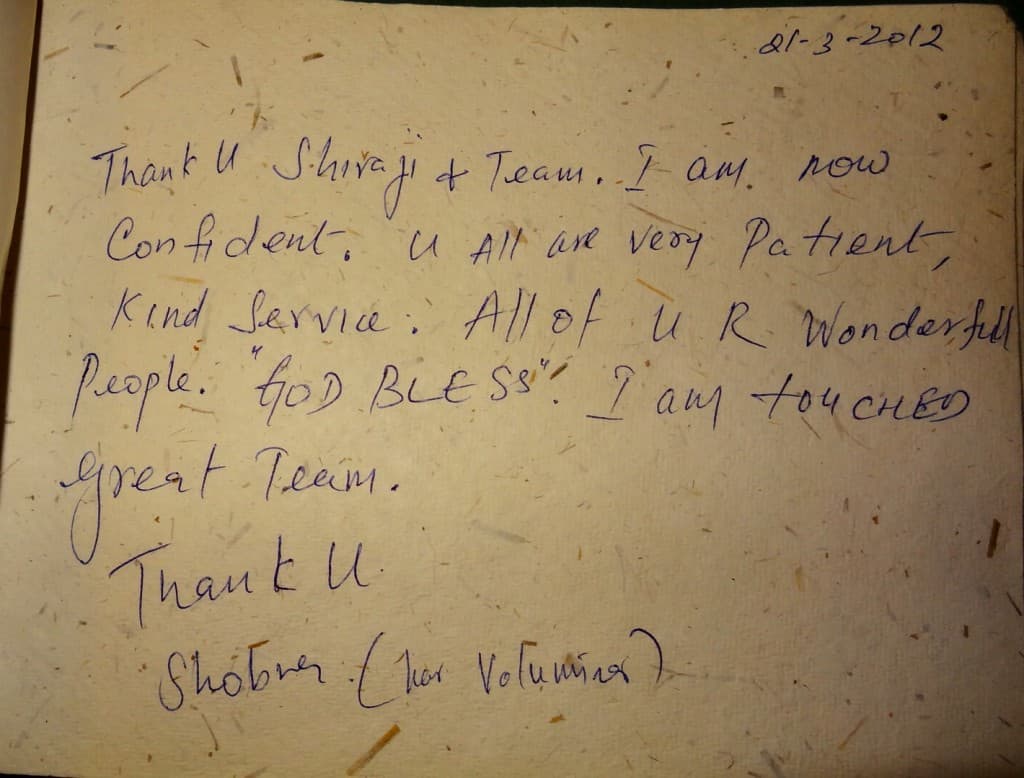 21-3-2012
Thank U Shivaji & Team. I am now
Confident. U All are very Patient,
Kind Service. All of U R Wonderfull
People. "GOD BLESS". I am touCHED
Great Team.
Thank U
Shobna (hai